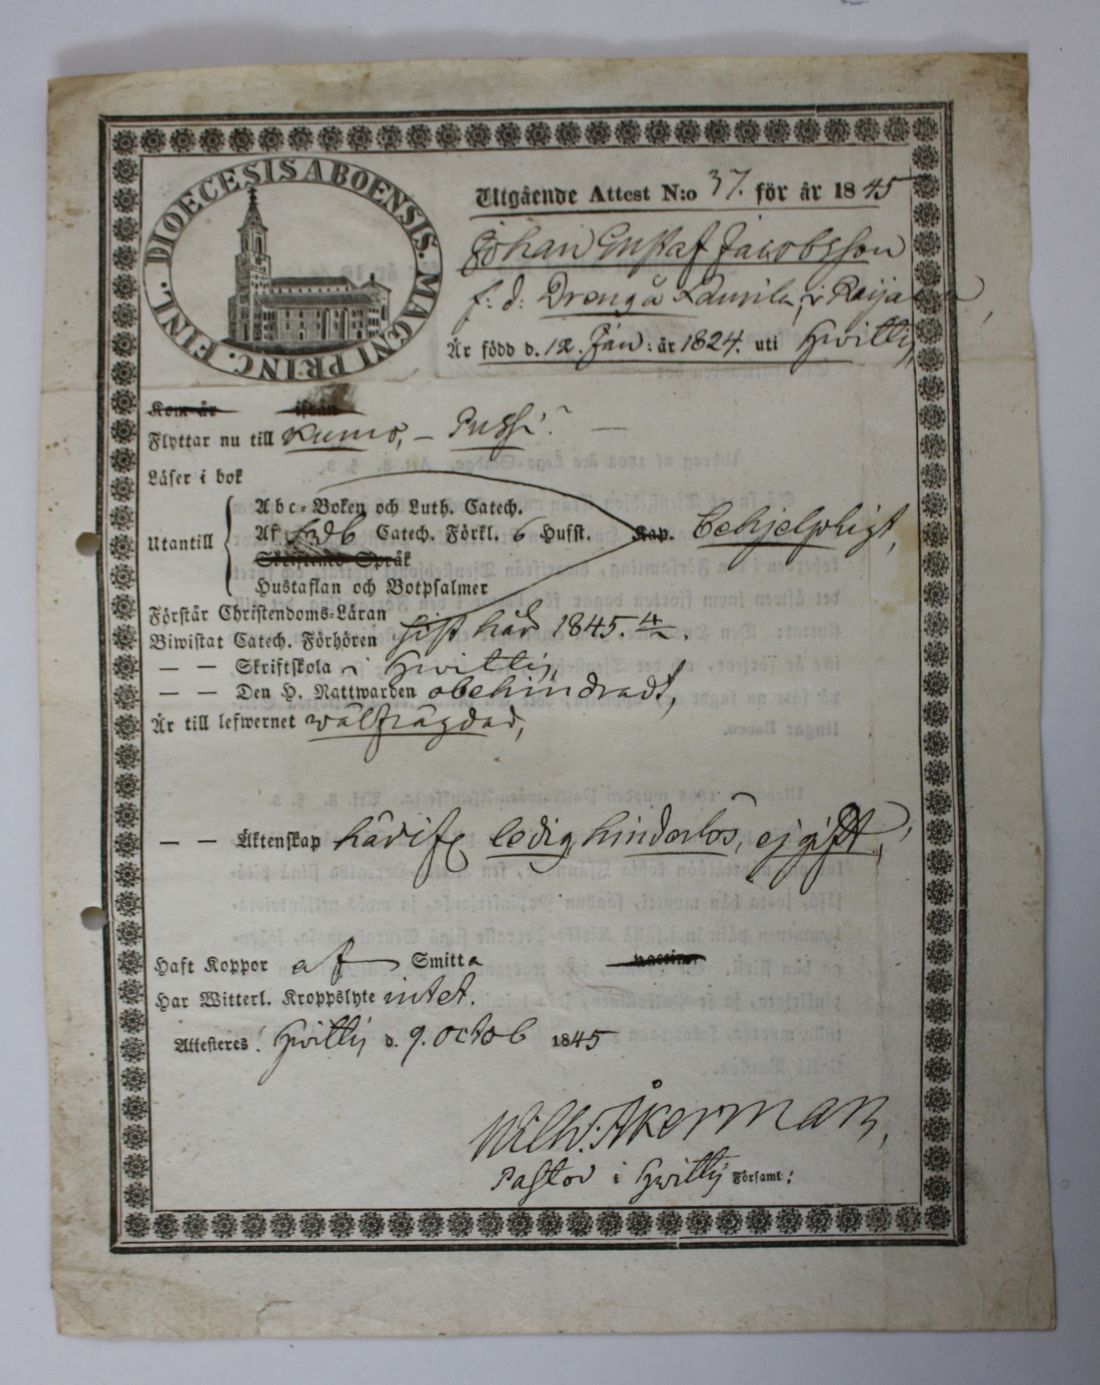 DIOECESIS ABOENSIS. MAGNI PRINC. FINL.
Utgående Attest N:o 37. för år 1845
Johan Gustaf Jacobsson
f: d: Dreng å Laurila, i Raija
Är född d. 12. Jan: år 1824. uti Hvittis,
Kom år ifrån
Flyttar nu till Kumo, – Pussi? –
Läser i bok
Utantill
Abc-Boken och Luth. Catech.
Af Catech. Förkl. 6 Husst. Kap. behjelpligt,
Skriftens Språk
Hustaflan och Botpsalmer
Förstår Christendoms-Läran
Biwistat Catech. Förhören sist håd 1845. 4/
— — Skriftskola i Hvittis,
— — Den H. Nattwarden obehindradt,
Är till lefwernet wälfrägdad,
— — Äktenskap härifr ledig hinderlös, ej gift,
Haft Koppor af Smitta vaccine
Har Witterl. Kroppslyte intet.
Attesteres! Hvittis d. 9. octob 1845
Wilh. Åkerman,
Pastor i Hvittis Församl: